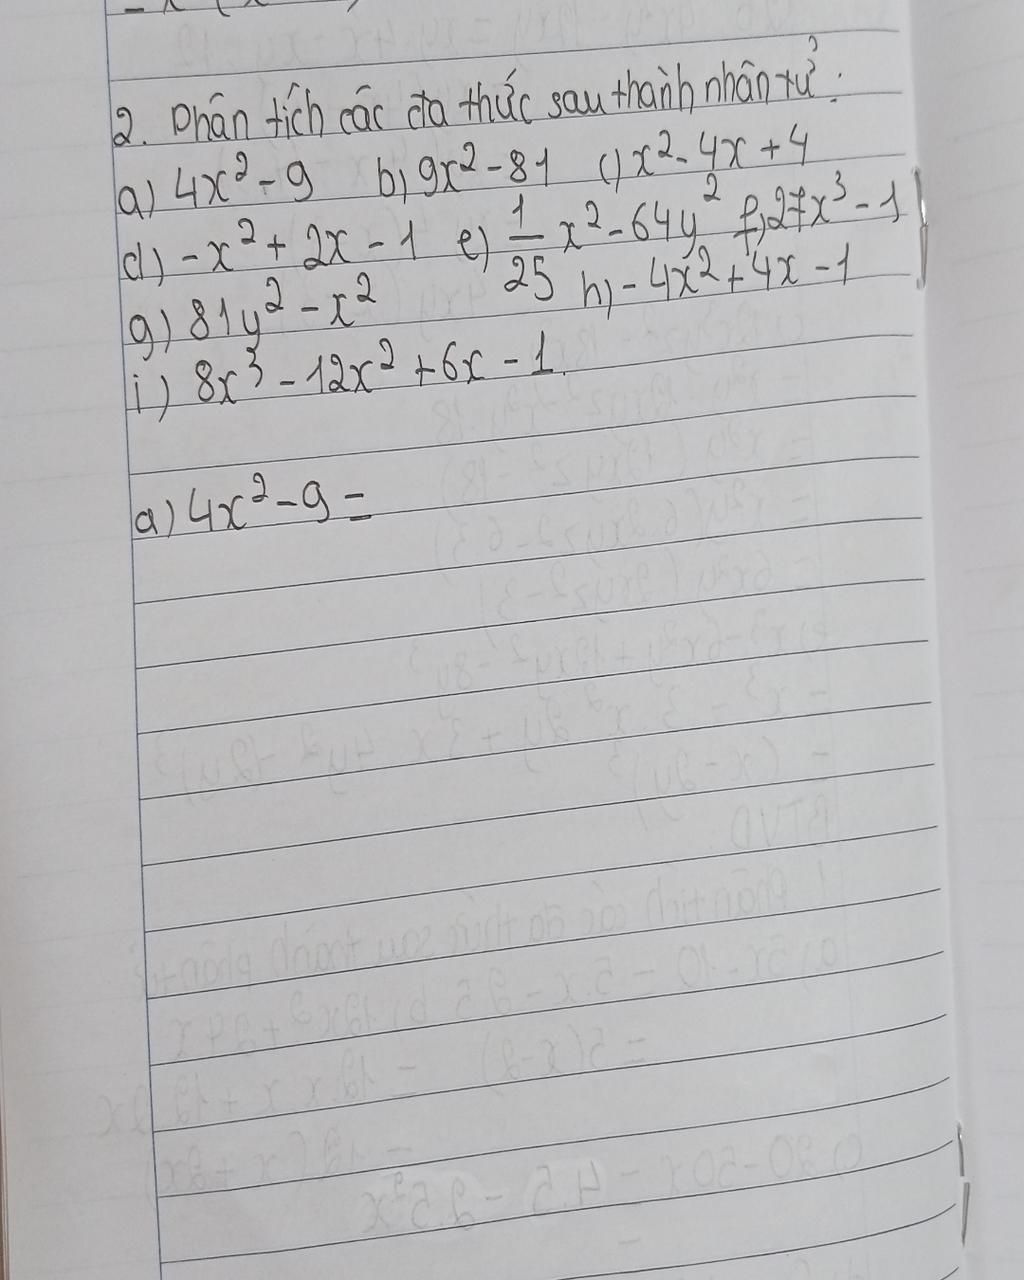 2. Phân tích các đa thức sau thành nhân tử:
a) 4x² - 9 b) 9x² - 81 c) x² - 4x + 4
d) -x² + 2x - 1 e) 1/25 x² - 64y² f) 27x³ - 1
g) 81y² - x² h) -4x² + 4x - 1
i) 8x³ - 12x² + 6x - 1.
a) 4x² - 9 =